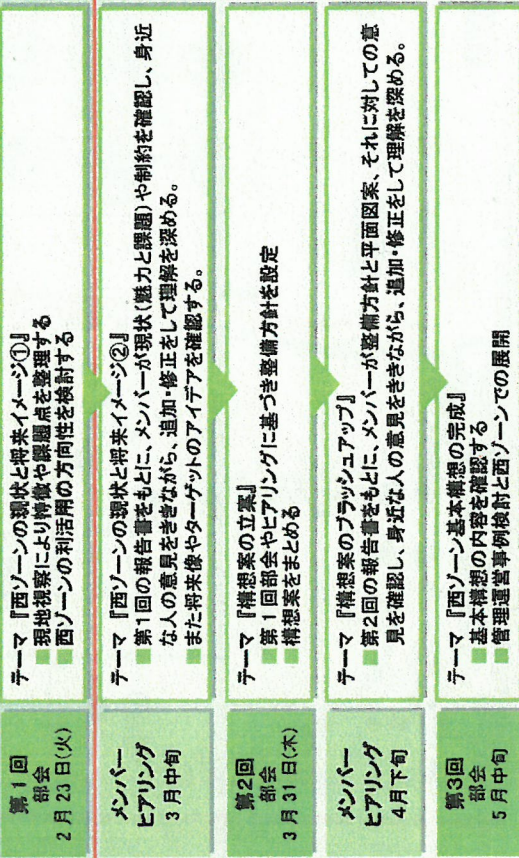 第1回
部会
2月23日(火)
テーマ『西ゾーンの現状と将来イメージ①』
■現地視察により特徴や課題点を整理する
■西ゾーンの利活用の方向性を検討する
メンバー
ヒアリング
3月中旬
テーマ『西ゾーンの現状と将来イメージ②』
■第1回の報告書をもとに、メンバーが現状(魅力と課題)や制約を確認し、身近
な人の意見をききながら、追加・修正をして理解を深める。
■また将来像やターゲットのアイデアを確認する。
第2回
部会
3月31日(木)
テーマ『構想案の立案』
■第1回部会やヒアリングに基づき整備方針を設定
■構想案をまとめる
メンバー
ヒアリング
4月下旬
テーマ『構想案のブラッシュアップ』
■第2回の報告書をもとに、メンバーが整備方針と平面図案、それに対しての意
見を確認し、身近な人の意見をききながら、追加・修正をして理解を深める。
第3回
部会
5月中旬
テーマ『西ゾーン基本構想の完成』
■基本構想の内容を確認する
■管理運営事例検討と西ゾーンでの展開